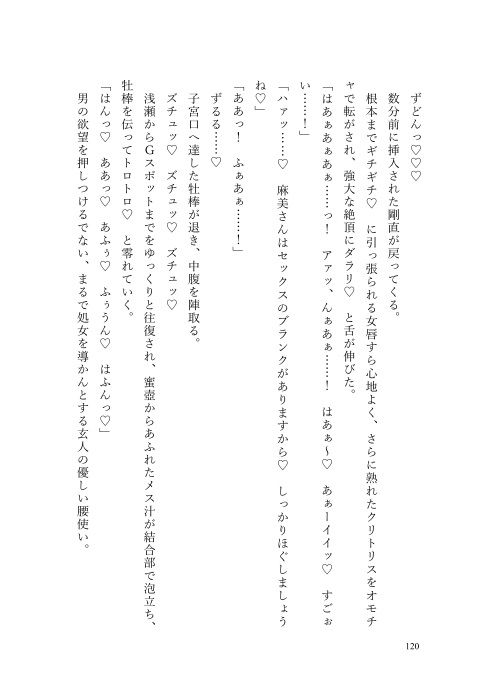 ずどんっ♡♡♡
数分前に挿入された剛直が戻ってくる。
根本までギチギチ♡　に引っ張られる女唇すら心地よく、さらに熟れたクリトリスをオモチ
ャで転がされ、強大な絶頂にダラリ♡　と舌が伸びた。
「はあぁあぁあぁ……っ！　アァッ、んぁあぁ……！　はあぁ〜♡　あぁーイイッ♡　すごぉ
い……！」
「ハァッ……♡　麻美さんはセックスのブランクがありますから♡　しっかりほぐしましょう
ね♡」
「ああっ！　ふぁあぁ……！」
ずるる……♡
子宮口へ達した牡棒が退き、中腹を陣取る。
ズチュッ♡　ズチュッ♡　ズチュッ♡
浅瀬からGスポットまでをゆっくりと往復され、蜜壺からあふれたメス汁が結合部で泡立ち、
牡棒を伝ってトロトロ♡　と零れていく。
「はんっ♡　ああっ♡　あふぅ♡　ふぅうん♡　はふんっ♡」
男の欲望を押しつけるでない、まるで処女を導かんとする玄人の優しい腰使い。
120